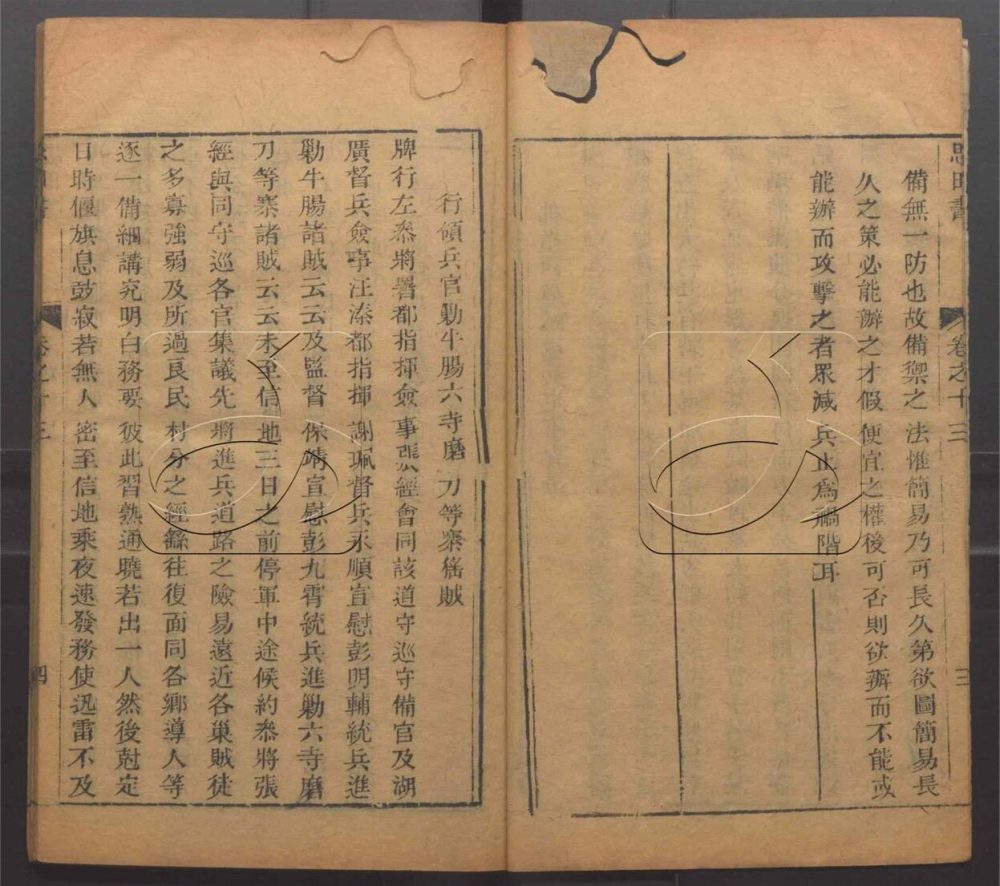 卷之十三
三
備無一防也故備禦之法惟簡易乃可長久第欲圖簡易長
久之策必能辦之才假便宜之權後可否則欲辦而不能或
能辦而攻擊之者眾減兵止爲禍階耳
行領兵官勦牛腸六寺磨刀等寨徭賊
牌行左叅將署都指揮僉事張經會同該道守巡守備官及湖
廣督兵僉事汪溱都指揮謝珮督兵永順宣慰彭明輔統兵進
勦牛腸諸賊云云及監督保靖宣慰彭九霄統兵進勦六寺磨
刀等寨諸賊云云未至信地三日之前停軍中途候約叅將張
經與同守巡各官集議先將進兵道路之險易遠近各巢賊徒
之多寡強弱及所過良民村分之經繇往復面同各鄉導人等
逐一備細講究明白務要彼此習熟通曉若出一人然後尅定
日時偃旗息鼓寂若無人密至信地乘夜速發務使迅雷不及
卷之十三
四